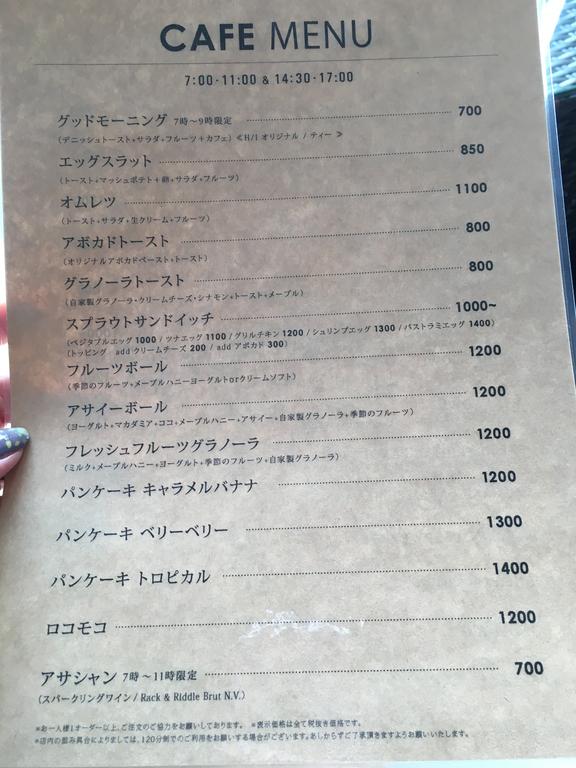 CAFE MENU
7:00-11:00 & 14:30-17:00
グッドモーニング 7時〜9時限定 700
(デニッシュトースト+サラダ+フルーツ+カフェ) ≪H/I オリジナル / ティー ≫
エッグスラット 850
(トースト+マッシュポテト+卵+サラダ+フルーツ)
オムレツ 1100
(トースト+サラダ+生クリーム+フルーツ)
アボカドトースト 800
(オリジナルアボカドペースト+トースト)
グラノーラトースト 800
(自家製グラノーラ・クリームチーズ・シナモン+トースト+メープル)
スプラウトサンドイッチ 1000~
(ベジタブルエッグ 1000 / ツナエッグ 1100 / グリルチキン 1200 / シュリンプエッグ 1300 / パストラミエッグ 1400)
(トッピング add クリームチーズ 200 / add アボカド 300)
フルーツボール 1200
(季節のフルーツ+メープルハニーヨーグルトorクリームソフト)
アサイーボール 1200
(ヨーグルト+マカダミア+ココ+メープルハニー+アサイー+自家製グラノーラ+季節のフルーツ)
フレッシュフルーツグラノーラ 1200
(ミルク+メープルハニー+ヨーグルト+季節のフルーツ+自家製グラノーラ)
パンケーキ キャラメルバナナ 1200
パンケーキ ベリーベリー 1300
パンケーキ トロピカル 1400
ロコモコ 1200
アサシャン 7時〜11時限定 700
(スパークリングワイン / Rack & Riddle Brut N.V.)
*お一人様1オーダー以上、ご注文のご協力をお願いしております。 *表示価格は全て税抜き価格です。
*店内の混み具合によりましては、120分制でのご利用をお願いする場合がございます。あしからずご了承頂きますようお願いいたします。